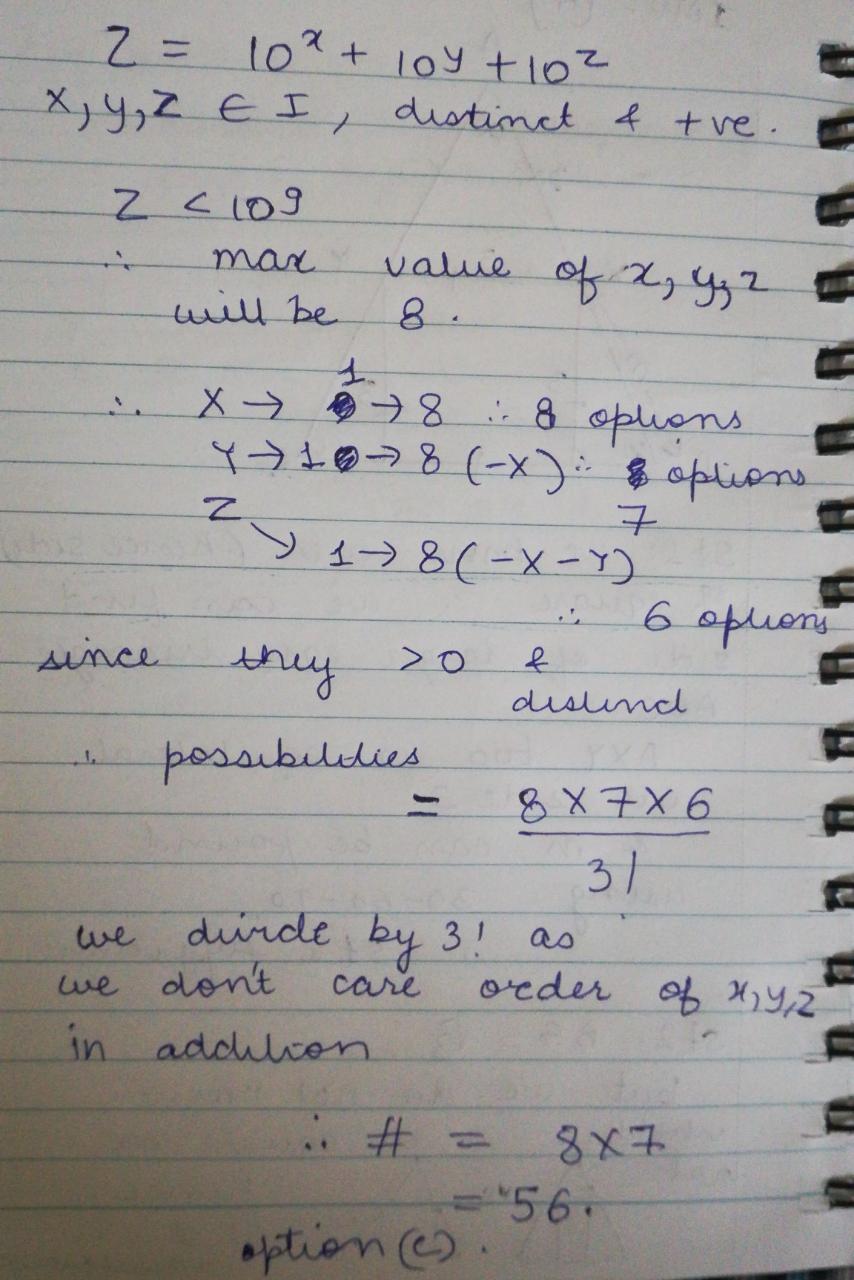 Z = 10^x + 10^y + 10^z
x, y, z ∈ I, distinct & +ve.
Z < 10^9
∴ max value of x, y, z
will be 8.
∴ X → 1 → 8 ∴ 8 options
Y → 1 → 8 (-X) ∴ 7 options
Z
↘ 1 → 8 (-X - Y)
∴ 6 options
since they > 0 &
distinct
∴ possibilities
= 8 X 7 X 6
3!
we divide by 3! as
we don't care order of x, y, z
in addition
∴ # = 8 X 7
= 56.
option (c).